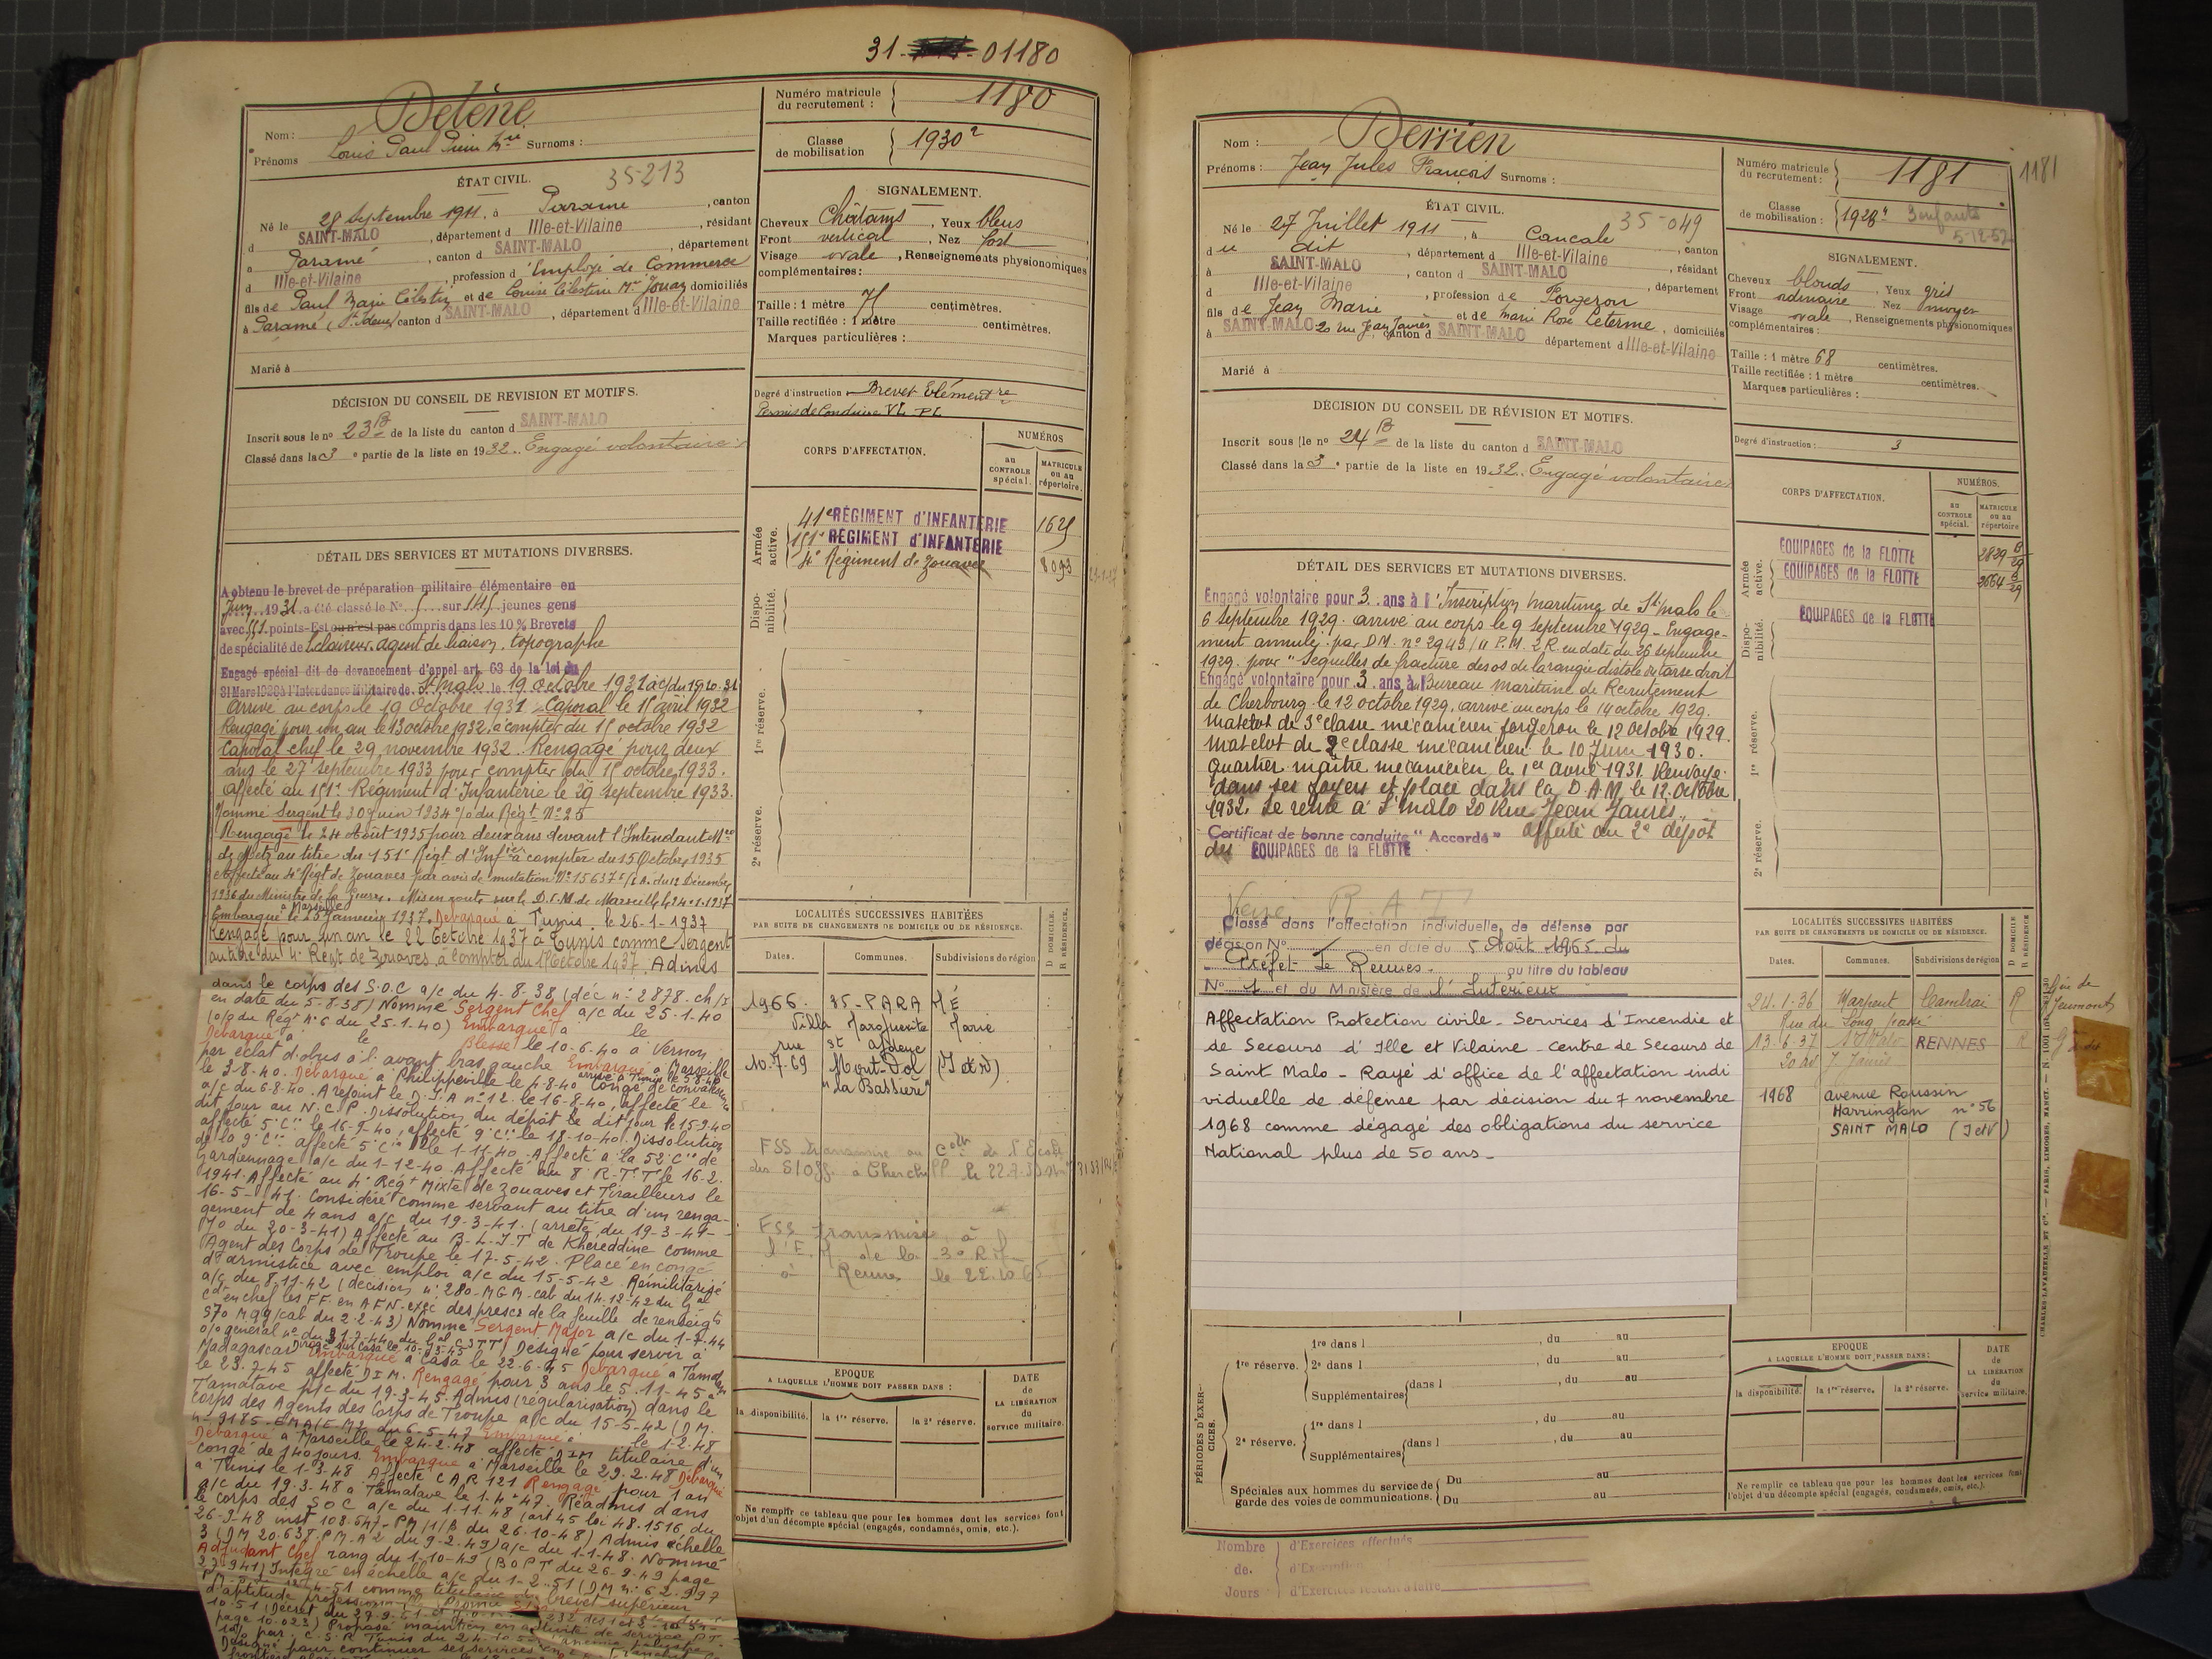 31- 01180
Nom : Delêne
Prénoms Louis Paul Surnoms :
ÉTAT CIVIL. 35-213
Né le 28 Septembre 1911, à Paramé, canton
d SAINT-MALO, département d Ille-et-Vilaine, résidant
à Paramé, canton d SAINT-MALO, département
d Ille-et-Vilaine, profession d'Employé de Commerce
fils de Paul Marie Célestin et de Louise Célestine Mie Jouan domiciliés
à Paramé canton d SAINT-MALO, département d Ille-et-Vilaine
Marié à
DÉCISION DU CONSEIL DE REVISION ET MOTIFS.
Inscrit sous le no 23 B de la liste du canton d SAINT-MALO
Classé dans la 3e partie de la liste en 1932. Engagé volontaire
DÉTAIL DES SERVICES ET MUTATIONS DIVERSES.
A obtenu le brevet de préparation militaire élémentaire en
Juin 1931 a été classé le No sur jeunes gens
avec points - Est ou n'est pas compris dans les 10 % Brevets
de spécialité de Eclaireur. agent de liaison. topographe
Engagé spécial dit de devancement d'appel art. 63 de la loi du
31 Mars 1928 à l'Intendance Militaire de St Malo le 19 octobre 1931 a/c du 15.10.31
Arrivé au corps le 19 Octobre 1931. Caporal le 15 avril 1932
Rengagé pour un an le 13 octobre 1932 à compter du 15 octobre 1932
Caporal chef le 29 novembre 1932. Rengagé pour deux
ans le 27 septembre 1933 pour compter du 15 octobre 1933.
affecté au 151e Régiment d'Infanterie le 29 septembre 1933.
Nommé Sergent le 30 Juin 1934 o/ du Régt No 25
Rengagé le 24 Août 1935 pour deux ans devant l'Intendant Mre
de Metz au titre du 151e Régt d'Infie à compter du 15 Octobre 1935
Affecté au 4e Régt de Zouaves par avis de mutation No 15637 du 12 Décembre
1936 du Ministre de la Guerre. Mis en route sur le D.I.M de Marseille le 24-1-1937
Embarqué à Marseille le 25 Janvier 1937. Débarqué à Tunis le 26-1-1937
Rengagé pour un an le 22 Octobre 1937 à Tunis comme Sergent
au titre du 4e Régt de Zouaves à compter du 15 Octobre 1937. Admis
dans le corps des S.O.C a/c du 4-8-38 (déc n° 2878.ch/I
en date du 5-8-38) Nommé Sergent Chef a/c du 25-1-40
(o/o du Régt N°6 du 25-1-40) Embarqué à le
Débarqué à le Blessé le 10-6-40 à Vernon
par éclat d'obus à l'avant bras gauche Embarqué à Marseille
le 3-8-40. Débarqué à Philippeville le 4-8-40 arrivé à Tunis le 5-8-40 Congé de convalescence
a/c du 6-8-40. A rejoint le D.I.A n°12 le 16-8-40, affecté le
dit jour au N.C.P. Dissolution du dépôt le dit jour le 15-9-40
affecté 5e Cie le 16-9-40, affecté 9e Cie le 18-10-40. Dissolution
de la 9e Cie affecté 5e Cie le 1-11-40. Affecté à la 52e Cie de
Gardiennage a/c du 1-12-40. Affecté au 8e R.T.T le 16-2-
1941. Affecté au 4e Régt Mixte de Zouaves et Tirailleurs le
16-5-41. Considéré comme servant au titre d'un renga-
gement de 4 ans a/c du 19-3-41. (arrêté du 19-3-41-
JO du 20-3-41) Affecté au B-L-I-T de Khereddine comme
Agent des Corps de Troupe le 17-5-42. Placé en congé
d'armistice avec emploi a/c du 15-5-42. Remilitarisé
a/c du 8-11-42 (décision n° 280-MGM-cab du 14-12-42 du Gal
Cdt en chef les FF. en AFN-exéc des prescr de la feuille de renseigts
970 MGG/cab du 2-2-43) Nommé Sergent Major a/c du 1-7-44
o/o général n° du 31-7-44 du Gal CSTT) Désigné pour servir à
Madagascar Dirigé sur Casa le 10-3-45 Embarqué à Casa le 22-6-45 Débarqué à Tamatave
le 23-7-45 affecté DIM. Rengagé pour 3 ans le 5-11-45 à
Tamatave p/c du 19-3-45. Admis (régularisation) dans le
corps des Agents des Corps de Troupe a/c du 15-5-42 (DM.
n° 9185-EMA/E-M2 du 6-5-47 Embarqué à le 1-2-48
Débarqué à Marseille le 24-2-48 affecté DIM titulaire d'un
congé de 140 jours. Embarqué à Marseille le 29-2-48 Débarqué
à Tunis le 1-3-48 Affecté CAR 121 Rengagé pour 1 an
a/c du 19-3-48 à Tamatave le 1-4-47. Réadmis dans
le corps des SOC a/c du 1-11-48 (art 45 loi 48-1516 du
26-9-48 inst 108-647-PM/1/B du 26-10-48) Admis échelle
3 (DM 20-638-P.M-A2 du 9-2-49) a/c du 1-1-48. Nommé
Adjudant Chef rang du 1-10-49 (BOPT du 26-9-49 page
27-941) Intégré en échelle a/c du 1-2-51 (DM n° 62-997
4-51 comme titulaire brevet supérieur
d'aptitude
10-51 (Décret du 29-9-51
page 10.023) Proposé maintien en activité de service
par C.S.R Tunis du 24-10-5
Désigné pour continuer ses services en
Numéro matricule du recrutement : 1180
Classe de mobilisation 1930
SIGNALEMENT.
Cheveux Châtains, Yeux bleus
Front vertical, Nez fort
Visage ovale, Renseignements physionomiques
complémentaires :
Taille : 1 mètre 71 centimètres.
Taille rectifiée : 1 mètre centimètres.
Marques particulières :
Degré d'instruction Brevet Elémentre
Permis de Conduire VL-PL
CORPS D'AFFECTATION.
NUMÉROS
au CONTROLE spécial.
MATRICULE ou au répertoire.
Armée active.
41e RÉGIMENT d'INFANTERIE 1625
151e RÉGIMENT d'INFANTERIE
4e Régiment de Zouaves 8093
Disponibilité.
1re réserve.
2e réserve.
LOCALITÉS SUCCESSIVES HABITÉES
PAR SUITE DE CHANGEMENTS DE DOMICILE OU DE RÉSIDENCE.
D DOMICILE. R RÉSIDENCE.
Dates. Communes. Subdivisions de région
1966. 35-PARAMÉ
Villa Marguerite Marie
rue St Ideuc
10.7.69 Mont-Dol (I et V)
"La Bassière"
FSS transmise au Ccolt de l'Ecole
des S/Off. à Cherchell le 22.7.
FSS transmise à
l'E. de la 3e R.M
à Rennes le 22.10.65
EPOQUE
A LAQUELLE L'HOMME DOIT PASSER DANS :
la disponibilité. la 1re réserve. la 2e réserve.
DATE de LA LIBÉRATION du service militaire.
Ne remplir ce tableau que pour les hommes dont les services font
l'objet d'un décompte spécial (engagés, condamnés, omis, etc.).
Nom : Berrien
Prénoms : Jean Jules François Surnoms :
ÉTAT CIVIL. 35-049
Né le 27 Juillet 1911, à Cancale, canton
du dit, département d Ille-et-Vilaine, résidant
à SAINT-MALO, canton d SAINT-MALO, département
d Ille-et-Vilaine, profession de Forgeron
fils de Jean Marie et de Marie Rose Leterme, domiciliés
à SAINT-MALO 20 rue Jean Jaurès canton d SAINT-MALO département d Ille-et-Vilaine
Marié à
DÉCISION DU CONSEIL DE RÉVISION ET MOTIFS.
Inscrit sous le no 24 B de la liste du canton d SAINT-MALO
Classé dans la 3e partie de la liste en 1932. Engagé volontaire
DÉTAIL DES SERVICES ET MUTATIONS DIVERSES.
Engagé volontaire pour 3 ans à l'Inscription maritime de St Malo le
6 septembre 1929. arrivé au corps le 9 septembre 1929 - Engage-
ment annulé par D.M. n° 2943/11 P.M. 2 R en date du 26 septembre
1929. pour "Sequelles de fracture des os de la rangée distale du tarse droit
Engagé volontaire pour 3 ans à Bureau maritime de Recrutement
de Cherbourg le 12 octobre 1929, arrivé au corps le 14 octobre 1929.
Matelot de 3e classe mécanicien forgeron le 12 Octobre 1929.
Matelot de 2e classe mécanicien le 10 Juin 1930.
Quartier maître mécanicien le 1er avril 1931. Renvoyé
dans ses foyers et placé dans la D.A.M. le 12 Octobre
1932. Se retire à St Malo 20 Rue Jean Jaurès.
Certificat de bonne conduite "Accordé" affecté au 2e dépôt
des EQUIPAGES de la FLOTTE
Versé R.A.T
Classé dans l'affectation individuelle de défense par
décision No en date du 5 Août 1965 du
Préfet de Rennes. au titre du tableau
No 1 et du Ministère de l'Intérieur
Affectation Protection civile - Services d'Incendie et
de Secours d'Ille et Vilaine - centre de Secours de
Saint Malo - Rayé d'office de l'affectation indi
viduelle de défense par décision du 7 novembre
1968 comme dégagé des obligations du service
National plus de 50 ans -
PÉRIODES D'EXERCICES.
1re réserve.
1re dans l , du au
2e dans l , du au
Supplémentaires dans l , du au
, du au
2e réserve.
1re dans l , du au
Supplémentaires dans l , du au
, du au
Spéciales aux hommes du service de garde des voies de communications.
Du au
Du au
Nombre de Jours
d'Exercices effectués
d'Exemption
d'Exercices restant à faire
Numéro matricule du recrutement : 1181 1181
Classe de mobilisation : 1928 3 enfants
5-12-52
SIGNALEMENT.
Cheveux blonds, Yeux gris
Front ordinaire, Nez moyen
Visage ovale, Renseignements physionomiques
complémentaires :
Taille : 1 mètre 68 centimètres.
Taille rectifiée : 1 mètre centimètres.
Marques particulières :
Degré d'instruction : 3
CORPS D'AFFECTATION.
NUMÉROS.
au CONTROLE spécial.
MATRICULE ou au répertoire
Armée active.
EQUIPAGES de la FLOTTE 2829 B/29
EQUIPAGES de la FLOTTE 2664 B/29
Disponibilité.
EQUIPAGES de la FLOTTE
1re réserve.
2e réserve.
LOCALITÉS SUCCESSIVES HABITÉES
PAR SUITE DE CHANGEMENTS DE DOMICILE OU DE RÉSIDENCE.
D DOMICILE R RÉSIDENCE
Dates. Communes. Subdivisions de région
24.1.36 Marpent Cambrai R
Rue du Long
13.6.37 St Malo RENNES R
20 J. Jaurès
1968 avenue Roussin
Harrington n°56
SAINT MALO (I et V)
EPOQUE
A LAQUELLE L'HOMME DOIT PASSER DANS :
la disponibilité. la 1re réserve. la 2e réserve.
DATE de LA LIBÉRATION du service militaire.
Ne remplir ce tableau que pour les hommes dont les services font
l'objet d'un décompte spécial (engagés, condamnés, omis, etc.).
CHARLES-LAVAUZELLE ET Cie. — PARIS, LIMOGES, NANCY.